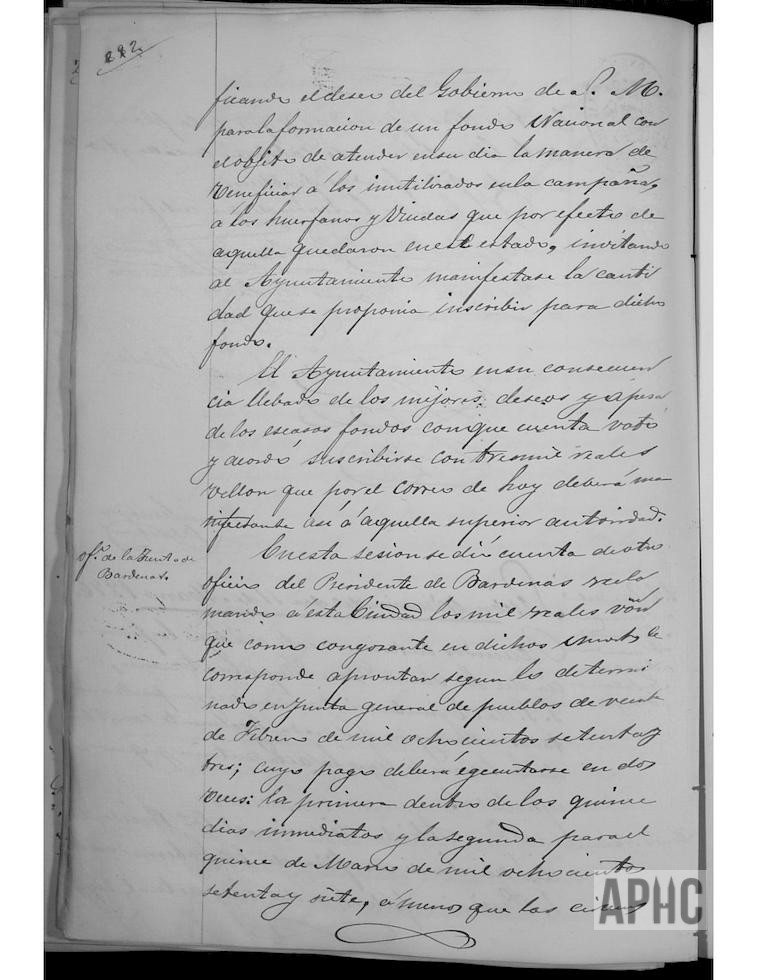 222
ficando el deseo del Gobierno de S. M.
para la formacion de un fondo Nacional con
el objeto de atender en su dia la manera de
beneficiar á los inutilizados en la campaña,
á los huerfanos y Viudas que por efecto de
aquella quedaron en este estado, invitando
al Ayuntamiento manifestase la canti
dad que se proponia inscribir para dicho
fondo.
El Ayuntamiento en su consecuen
cia llebado de los mejores deseos y á pesar
de los escasos fondos con que cuenta votó
y acordó suscribirse con tres mil reales
vellon que por el correo de hoy deberá ma
nifestarse asi á aquella superior autoridad.
ofº. de la Junta de
Bardenas.
En esta sesion se dió cuenta de otro
oficio del Presidente de Bardenas recla
mando á esta Ciudad los mil reales von
que como congozante en dichos montes le
corresponde aprontar segun lo determi
nado en Junta general de pueblos de veinte
de Febrero de mil ochocientos setenta y
tres; cuyo pago deberá egecutarse en dos
veces: la primera dentro de los quince
dias inmediatos y la segunda para el
quince de Marzo de mil ochocientos
setenta y siete, á menos que las circuns
APHC